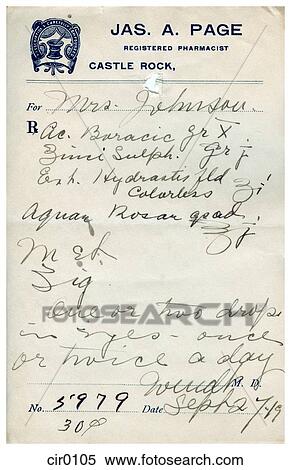 JAS. A. PAGE
REGISTERED PHARMACIST
CASTLE ROCK,
For Mrs. Johnson.
℞ Ac. Boracic gr X.
Zinci Sulph. gr j
Ext. Hydrastis fld
Colorless ʒi
Aquae Rosae qs ad.
℥j
M et.
Sig.
One or two drops
in eyes - once
or twice a day
M. D.
No. 5979 Date Sept 27/19
30¢
FOTOSEARCH
cir0105 www.fotosearch.com